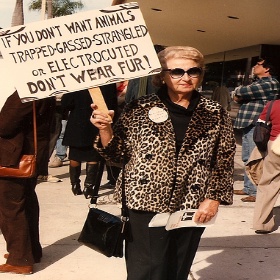 IF YOU DON'T WANT ANIMALS
TRAPPED-GASSED-STRANGLED
OR ELECTROCUTED
DON'T WEAR FUR!